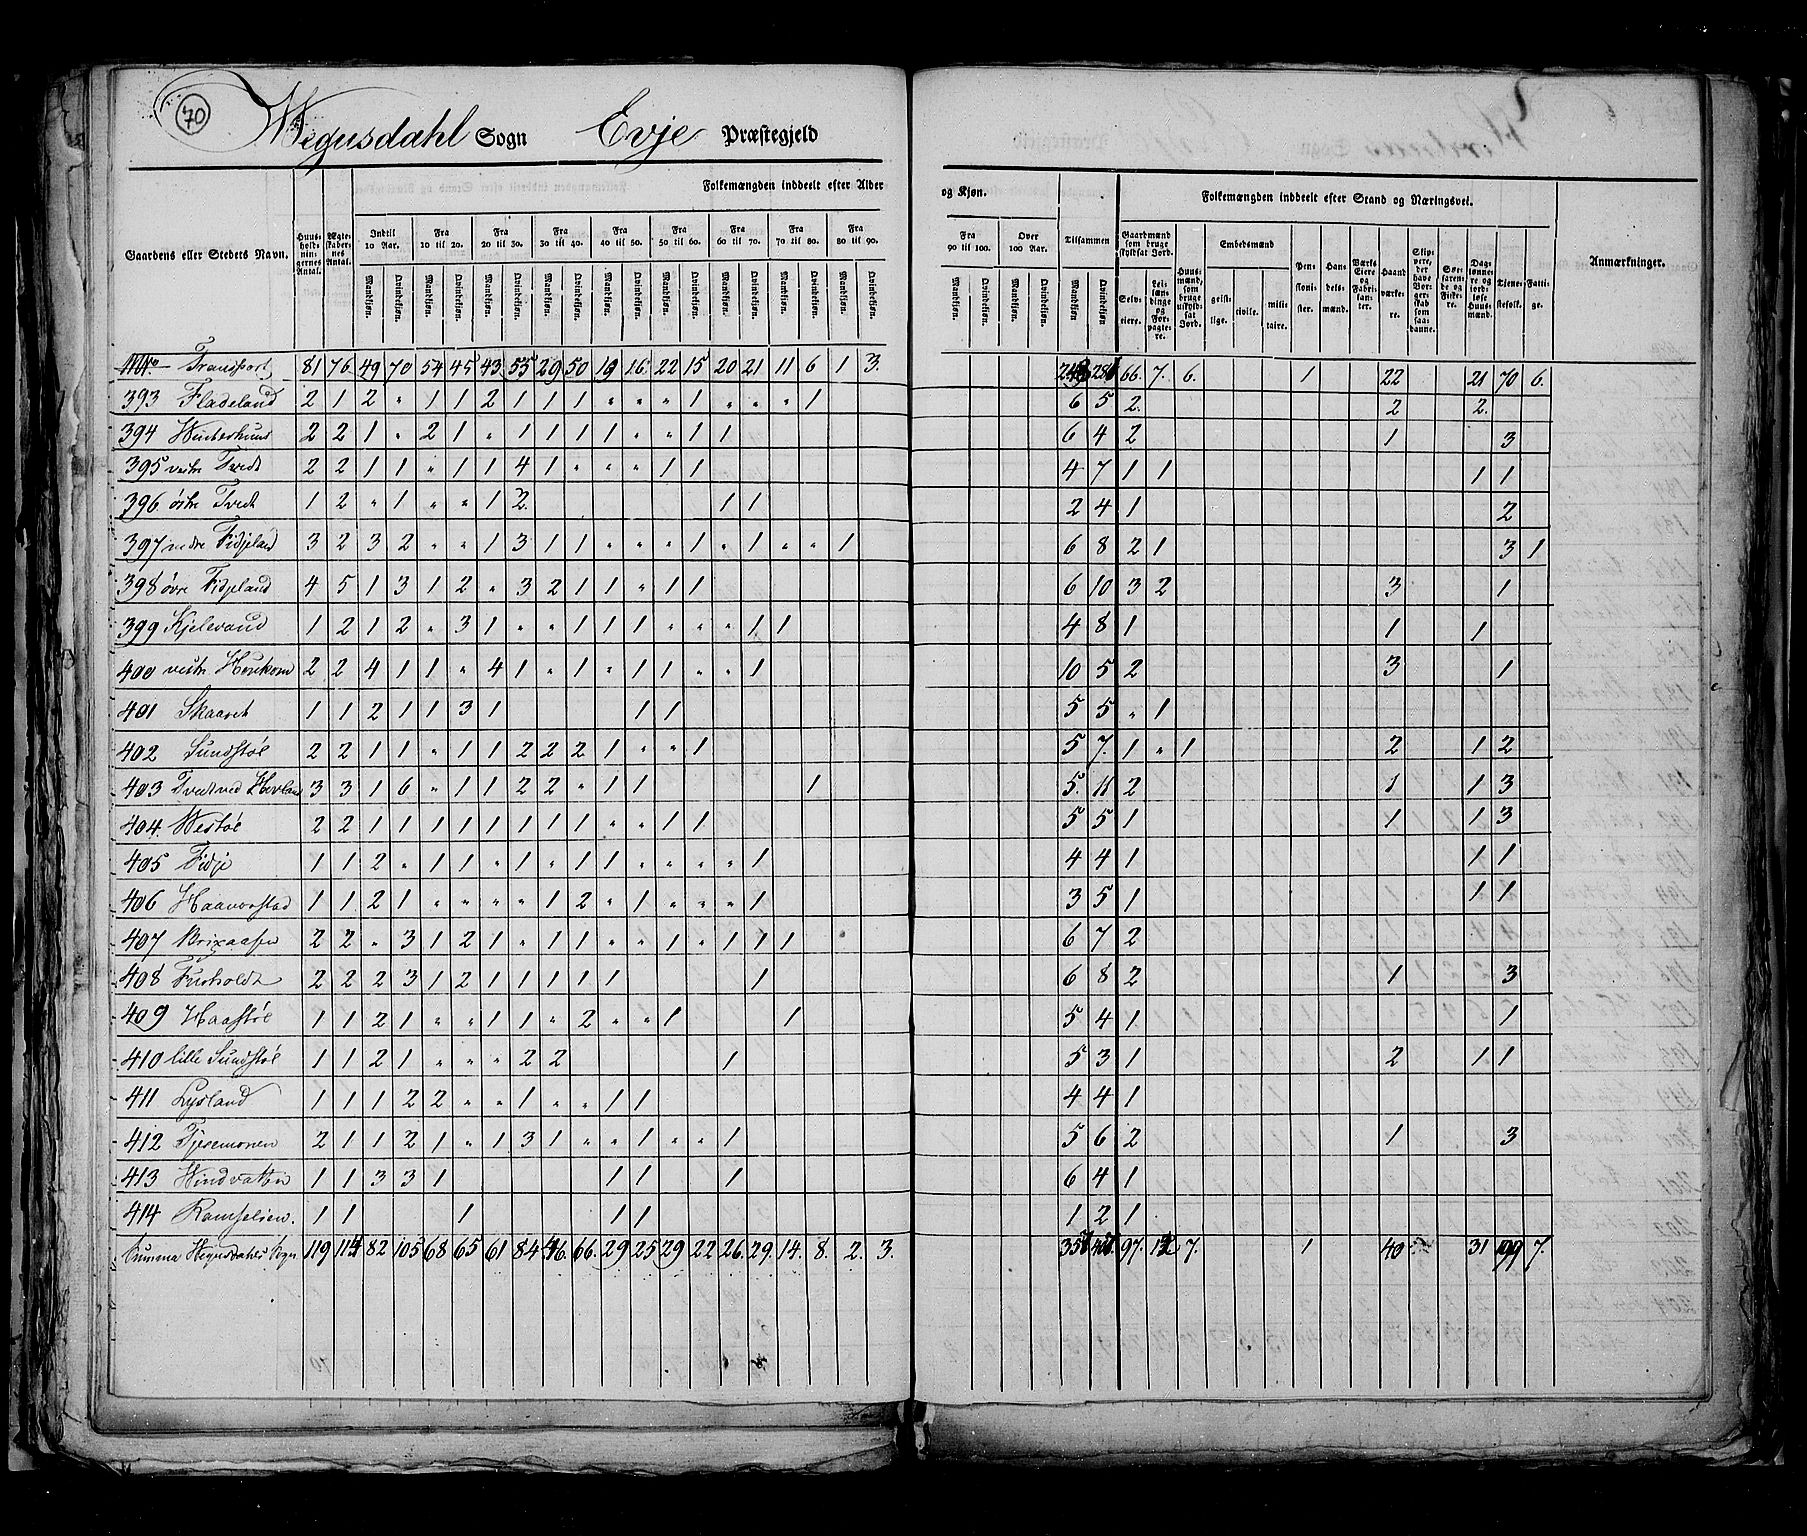 70
Wegusdahl Sogn Evje Præstegjeld
Gaardens eller Steders Navn.
Huus-holdnin-gernes Antal.
Ægte-skaber-nes Antal.
Folkemængden inddeelt efter Alder
og Kjøn.
Indtil 10 Aar.
Fra 10 til 20.
Fra 20 til 30.
Fra 30 til 40.
Fra 40 til 50.
Fra 50 til 60.
Fra 60 til 70.
Fra 70 til 80.
Fra 80 til 90.
Fra 90 til 100.
Over 100 Aar.
Mandkjøn. Qvindekjøn.
Tilsammen
Folkemængden inddeelt efter Stand og Næringsvei.
Gaardmænd som bruge skyldsat Jord.
Selv-eiere.
Lei-læn-dinge og For-pagte-re.
Huus-mænd, som bruge uskyld-sat Jord.
Embedsmænd
geist-lige.
civile.
mili-taire.
Pen-sioni-ster.
Han-dels-mænd.
Værks Eiere og Fabri-kanter.
Haand-værke-re.
Daglønne-re og jord-løse Huus-mænd.
Tjene-stefolk.
Fatti-ge.
Anmærkninger.
Transport 81 76 49 70 54 45 43 55 29 50 19 16 22 15 20 21 11 6 1 3. 66. 7. 6. 1 22 21 70 6.
393 Fladeland 2 1 2 " 1 1 2 1 1 1 " " " 1 " " " 1 6 5 2. 2 2.
394 Winterhuus 2 2 1 " 2 1 " 1 1 1 1 " " 1 1 6 4 2 1 3
395 vestre Tvedt 2 2 1 1 " 1 1 4 1 " " " 1 1 4 7 1 1 1 1
396 østre Tvedt 1 2 " 1 " " 1 2. 1 1 2 4 1 2
397 nedre Fidjeland 3 2 3 2 " " 1 3 1 1 " " " 1 " 1 " " 1 6 8 2 1 3 1
398 øvre Fidjeland 4 5 1 3 1 2 " 3 2 1 1 " 1 1 6 10 3 2 3 1
399 Kjelevand 1 2 1 2 " 3 1 " " 1 1 1 " " " 1 1 4 8 1 1 1
400 vestre 2 2 4 1 1 " 4 1 " 1 " 1 1 " " 1 10 5 2 3 1
401 Skaaret 1 1 2 1 1 3 1 1 1 5 5 " 1
402 Sundstøl 2 2 1 1 " 1 1 2 2 2 1 " " 1 5 7. 1 " 1 2 1 2
403 Tvedt ved 3 3 1 6 " 1 1 2 2 " 1 1 1 5. 11 2 1 1 3
404. Westøl 2 2 1 1 1 1 1 1 1 1 " " 1 1 5 5 1 1 1 3
405 Fidje 1 1 2 " 1 1 " 1 " 1 1 " " " " 1 4 4 1 1 1
406 Haavorstad 1 1 2 1 " " " " 1 2 " 1 " " " 1 3 5 1 1 1
407 Brixaasen 2 2 " 3 1 2 1 " 1 1 " " 1 " 1 1 1 6 7 2
408 Furholdt 2 2 2 3 1 2 1 1 1 1 1 1 6 8 2 1 3
409 Haastøl 1 1 2 1 " " 1 1 " 2 " " 1 1 5 4 1 1
410 lille Sundstøl 1 1 2 1 " " " 2 2 1 5 3 1 2 1 1
411 Lysland 1 1 1 2 2 " " 1 " " 1 1 4 4 1
412 Tjesemonen 2 1 1 2 1 " 1 3 1 " " 1 " " 1 5 6 2 1 3
413 Windvatten 1 1 3 3 1 1 1 1 6 4 1
414 Ramselien. 1 1 1 1 1 1 2 1
Summa Hegusdahls Sogn 119 114 82 105 68 65 61 84 46. 66. 29 25 29 22 26. 29. 14. 8. 2. 3. 97. 12 7. 1 40 31 99 7.